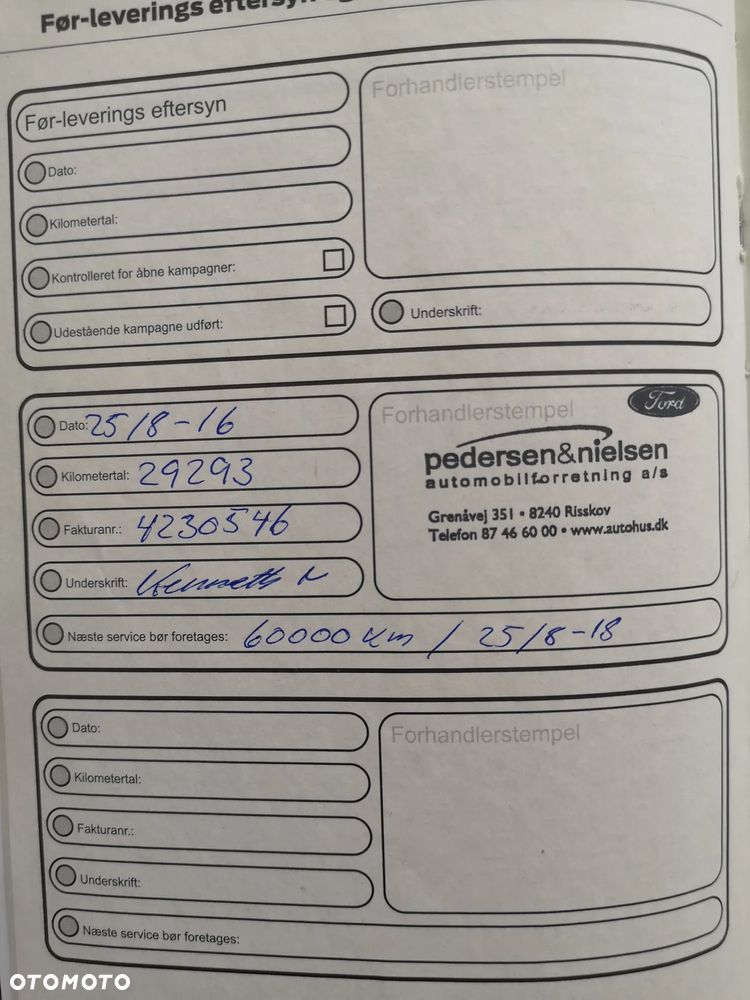 Før-leverings eftersyn
Før-leverings eftersyn
Forhandlerstempel
Dato:
Kilometertal:
Kontrolleret for åbne kampagner:
Udestående kampagne udført:
Underskrift:
Dato: 25/8-16
Kilometertal: 29293
Fakturanr.: 4230546
Underskrift: Kenneth N
Næste service bør foretages: 60000 km / 25/8-18
Forhandlerstempel
Ford
pedersen&nielsen
automobilforretning a/s
Grenåvej 351 • 8240 Risskov
Telefon 87 46 60 00 • www.autohus.dk
Dato:
Kilometertal:
Fakturanr.:
Underskrift:
Næste service bør foretages:
Forhandlerstempel
OTOMOTO